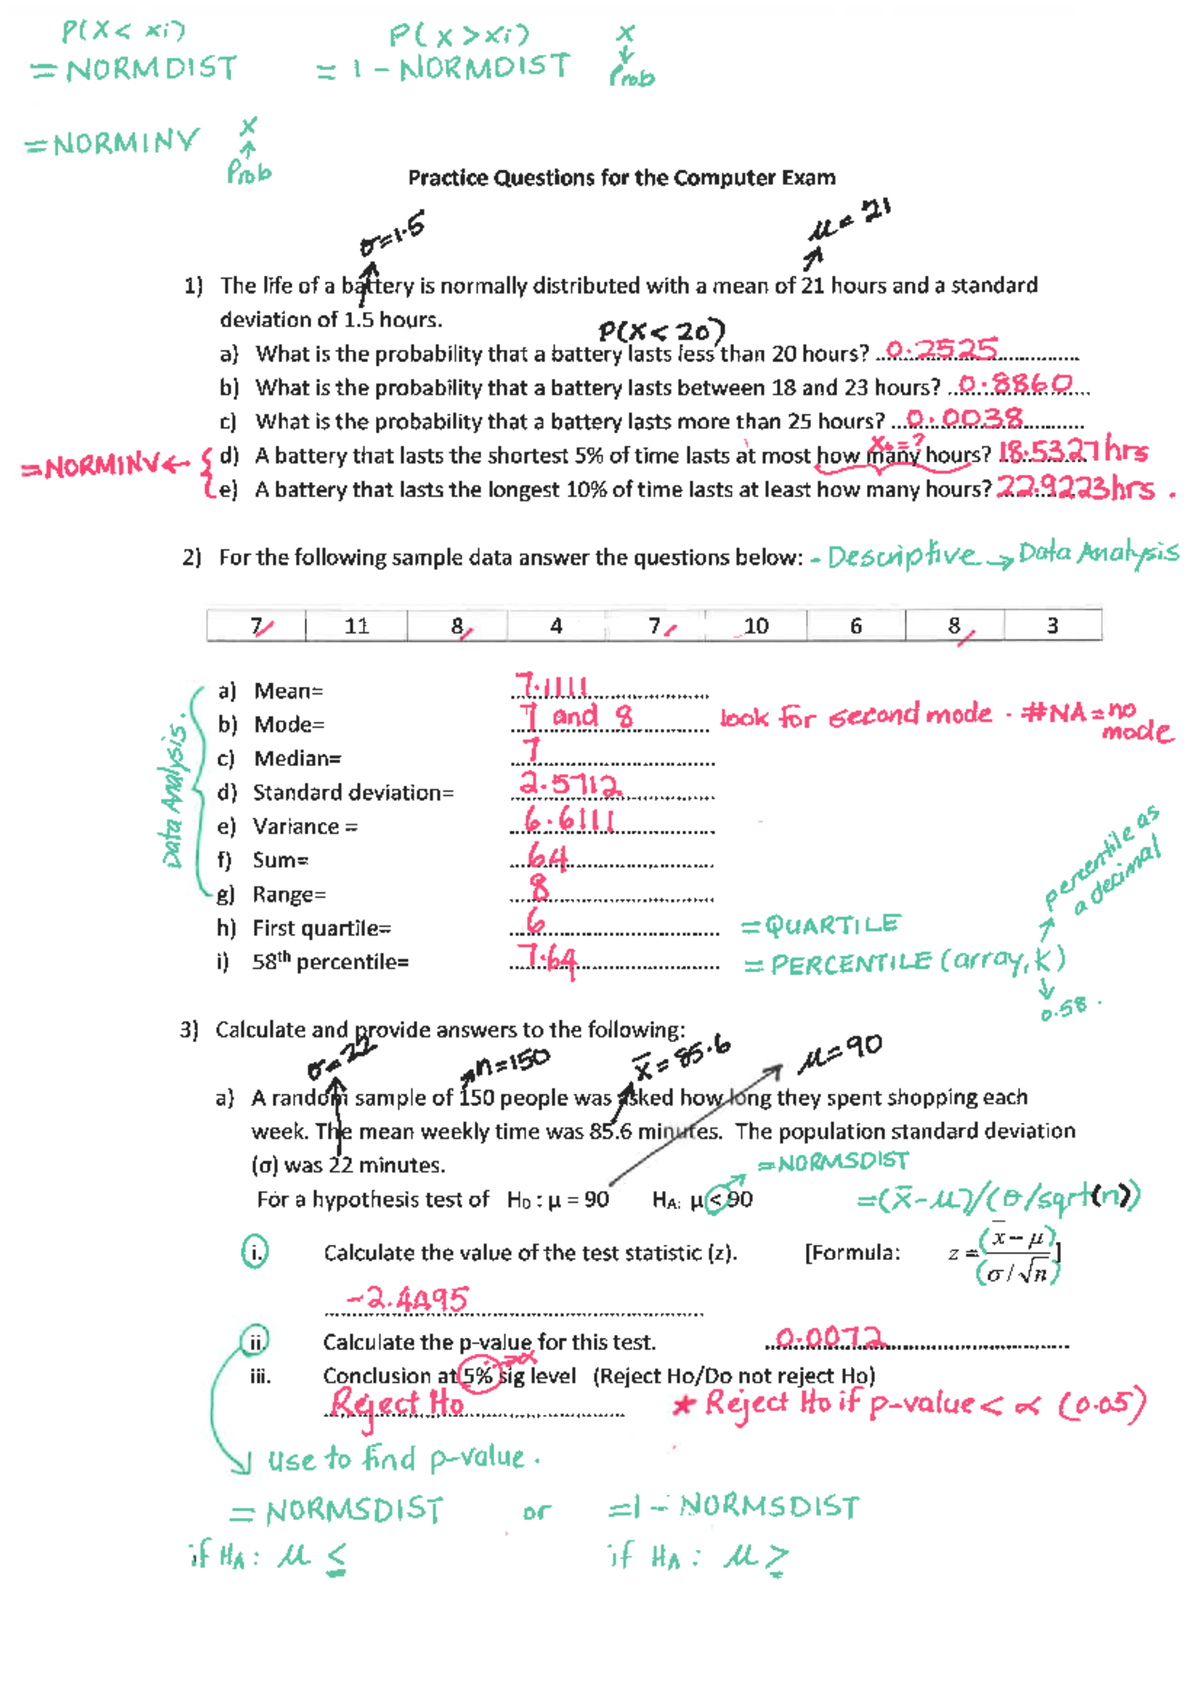 P(X < xi)
P(X > xi)
x
= NORMDIST
= 1 - NORMDIST
Prob
= NORMINV
x
Prob
Practice Questions for the Computer Exam
σ=1.5
μ = 21
1) The life of a battery is normally distributed with a mean of 21 hours and a standard
deviation of 1.5 hours.
P(X < 20)
a) What is the probability that a battery lasts less than 20 hours? 0.2525
b) What is the probability that a battery lasts between 18 and 23 hours? 0.8860
c) What is the probability that a battery lasts more than 25 hours? 0.0038
=NORMINV
d) A battery that lasts the shortest 5% of time lasts at most how many hours? 18.5327 hrs
e) A battery that lasts the longest 10% of time lasts at least how many hours? 22.9223 hrs.
2) For the following sample data answer the questions below: - Descriptive → Data Analysis
7 11 8 4 7 10 6 8 3
Data Analysis.
a) Mean= 7.1111
b) Mode= 7 and 8 look for second mode. #NA = no mode
c) Median= 7
d) Standard deviation= 2.5712
e) Variance = 6.6111
f) Sum= 64
g) Range= 8
percentile as a decimal
h) First quartile= 6 = QUARTILE
i) 58th percentile= 7.64 = PERCENTILE (array, k)
0.58.
3) Calculate and provide answers to the following:
σ=22
n=150
x̄ = 85.6
μ=90
a) A random sample of 150 people was asked how long they spent shopping each
week. The mean weekly time was 85.6 minutes. The population standard deviation
(σ) was 22 minutes.
=NORMSDIST
For a hypothesis test of H0 : μ = 90 HA: μ < 90
=(x̄-μ)/(σ/sqrt(n))
i. Calculate the value of the test statistic (z). [Formula: z = (x̄ − μ) / (σ / √n) ]
-2.4495
ii. Calculate the p-value for this test. 0.0072
α
iii. Conclusion at 5% sig level (Reject Ho/Do not reject Ho)
Reject Ho
★ Reject Ho if p-value < α (0.05)
use to find p-value.
= NORMSDIST or =1 - NORMSDIST
if HA: μ ≤ if HA: μ ≥